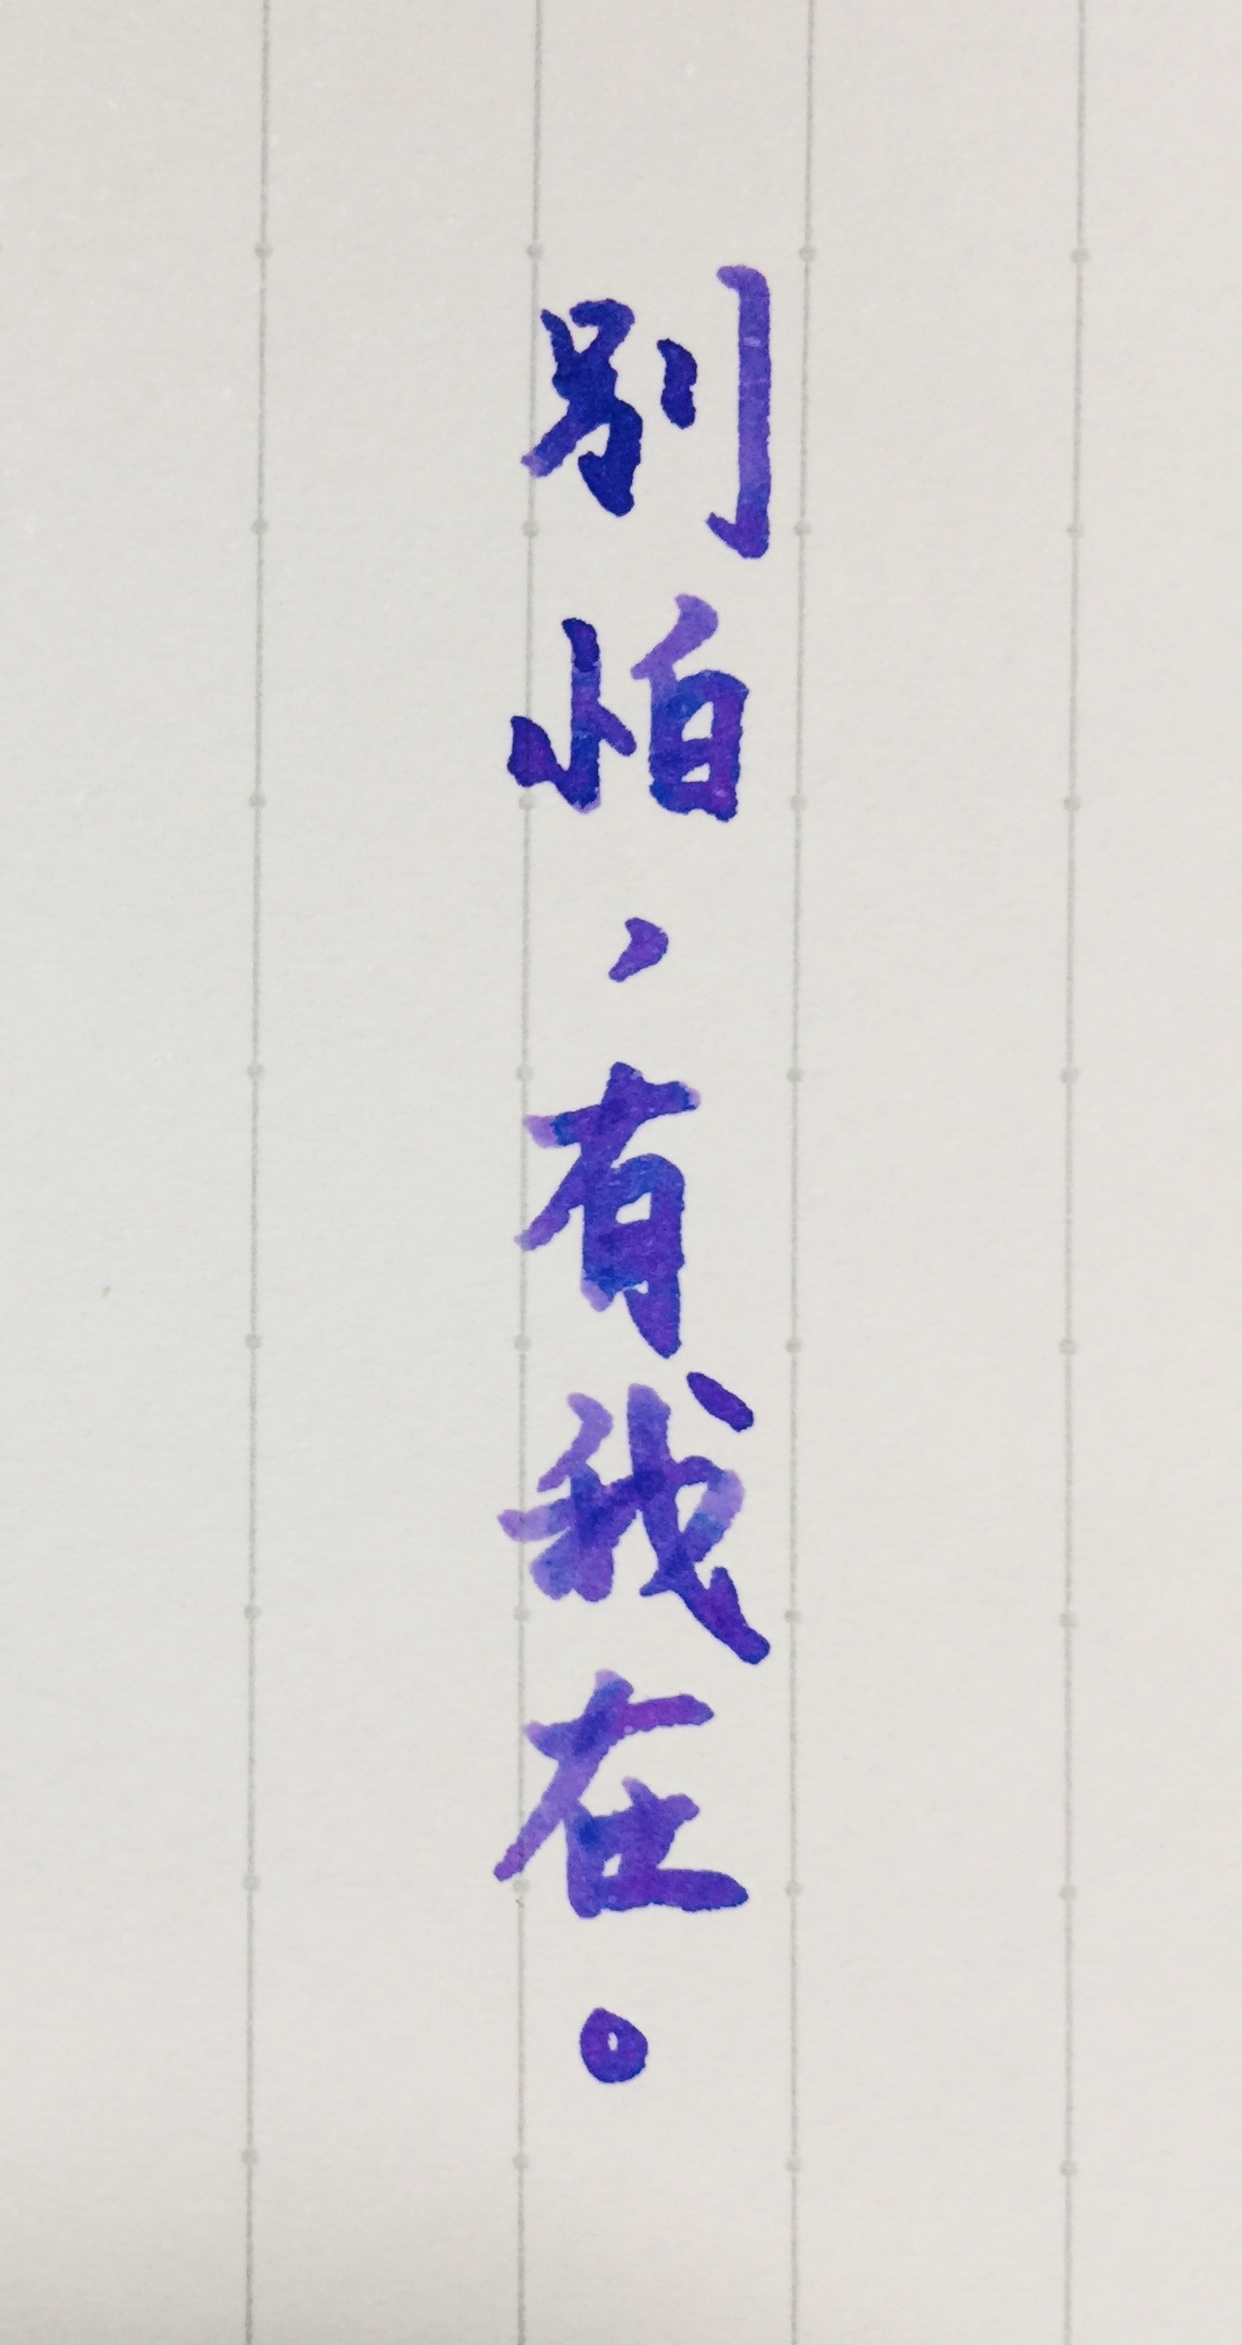 别怕，有我在。